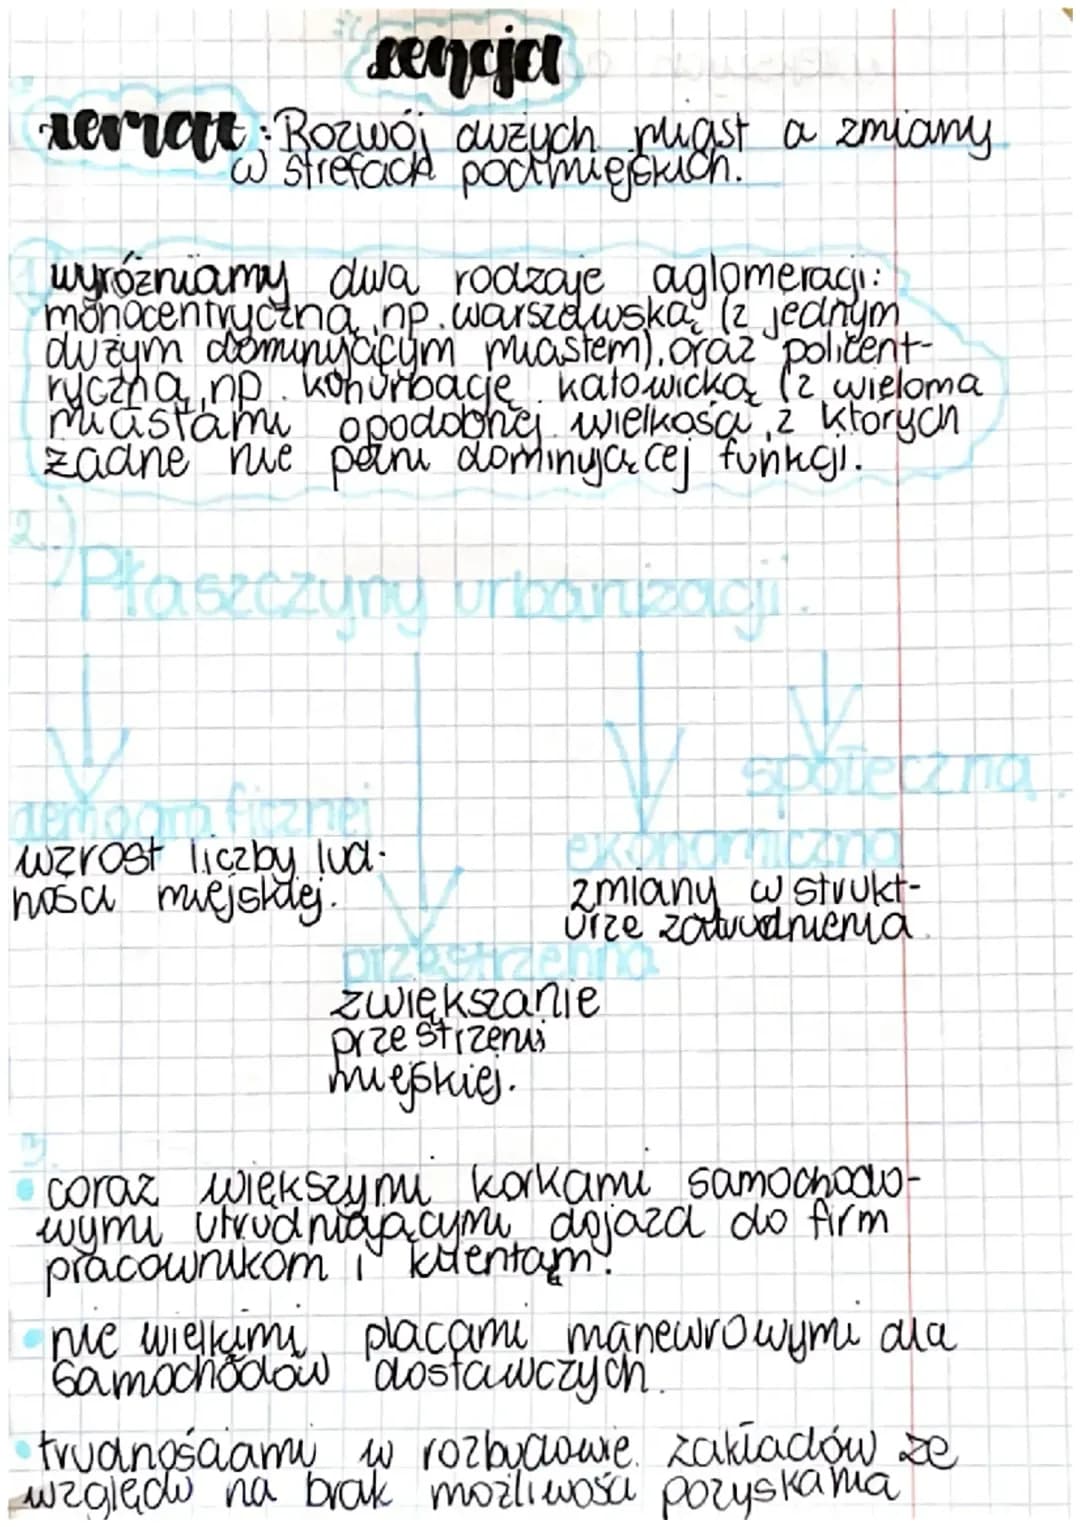 Lekcja
Temat: Rozwój dużych miast a zmiany
w strefach podmiejskich.
1.
wyróżniamy dwa rodzaje aglomeracji:
monocentryczną, np. warszawską (z jednym
dużym dominyjącym miastem), oraz policent-
ryczną, np. konurbację katowicką (z wieloma
miastami opodobnej wielkości, z których
żadne nie pełni dominyjącej funkcji.
2.) Płaszczyny urbanizacji.
społeczna.
demograficznej
wzrost liczby lud-
ności miejskiej.
ekonomiczna
zmiany w strukt-
urze zatrudnienia.
przestrzenna
zwiększanie
przestrzeni
miejskiej.
3.
• coraz większymi korkami samochodo-
wymi utrudniającymi dojazd do firm
pracownikom i klientąm.
• nie wielkimi placami manewrowymi dla
samochodów dostawczych.
• trudnościami w rozbudowie zakładów ze
względu na brak możliwości pozyskania